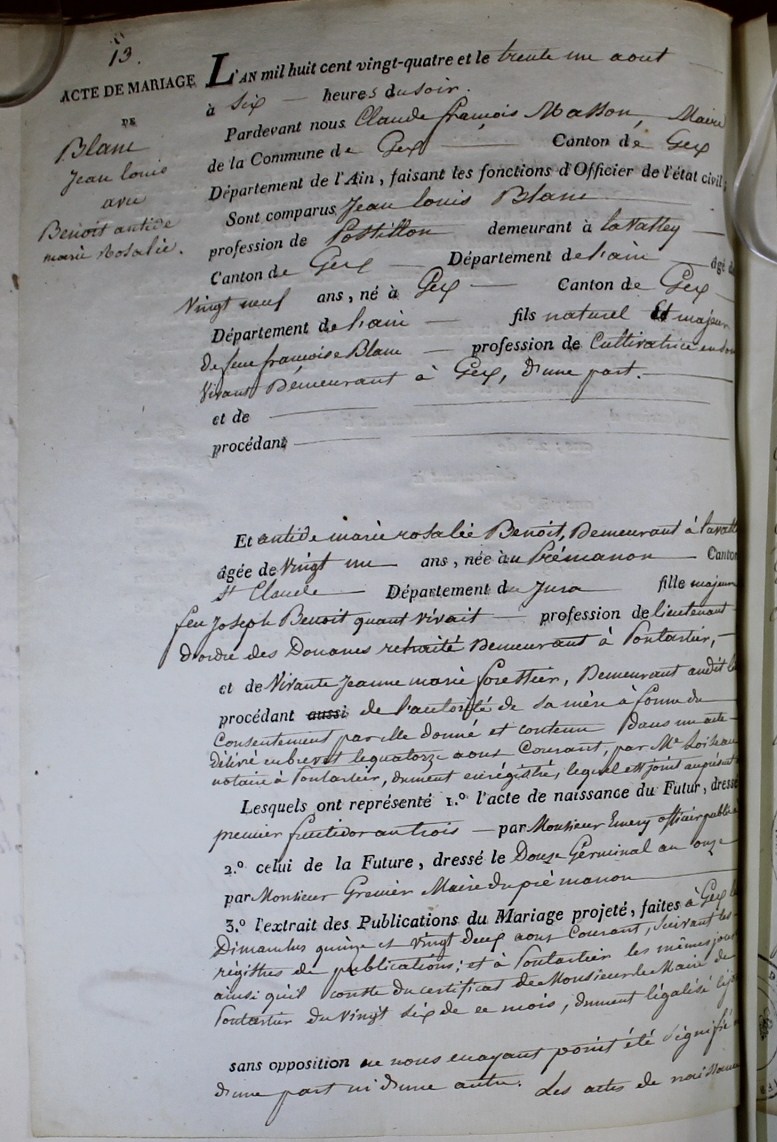 13.
ACTE DE MARIAGE
DE
Blanc
Jean louis
avec
Benoit antide
marie Rosalie.
L'AN mil huit cent vingt-quatre et le trente un aout
à six heures du soir.
Pardevant nous Claude françois Masson, Maire
de la Commune de Gex Canton de Gex
Département de l'Ain, faisant les fonctions d'Officier de l'état civil;
Sont comparus Jean louis Blanc
profession de Postillon demeurant à lavattey
Canton de Gex Département de l'ain âgé de
Vingt neuf ans, né à Gex Canton de Gex
Département de l'ain fils naturel Et majeur
de feue françoise Blanc profession de Cultivatrice en son
Vivant Demeurant à Gex, d'une part.
et de
procédant
Et antide marie rosalie Benoit, Demeurant à lavatt
âgée de Vingt un ans, née à Prémanon Canton
St Claude Département du Jura fille majeure
feu Joseph Benoit quant vivait profession de lieutenant
d'ordre des Douanes retraité Demeurant à Pontarlier,
et de Vivante Jeanne marie forestier, Demeurant audit l
procédant aussi de l'autorité de sa mère à forme du
Consentement par elle donné et contenu Dans un acte
délivré en brevet le quatorze aout Courant, par Me Loiseau
notaire à Pontarlier, dument enrégistré, lequel est joint au présent
Lesquels ont représenté 1.º l'acte de naissance du Futur, dressé
premier fructidor an trois par Monsieur Emery officier public
2.º celui de la Future, dressé le Douze Germinal an onze
par Monsieur Grenier Maire du prémanon
3.º l'extrait des Publications du Mariage projeté, faites à Gex l
Dimanches quinze et vingt Deux aout Courant, suivant les
régistres de publications; et à Pontarlier les mêmes jours
ainsi qu'il conste du certificat de Monsieur le Maire de
Pontarlier du Vingt six de ce mois, dument légalisé le
sans opposition ne nous en ayant point été signifié
d'une part ni d'une autre. Les actes de naissance